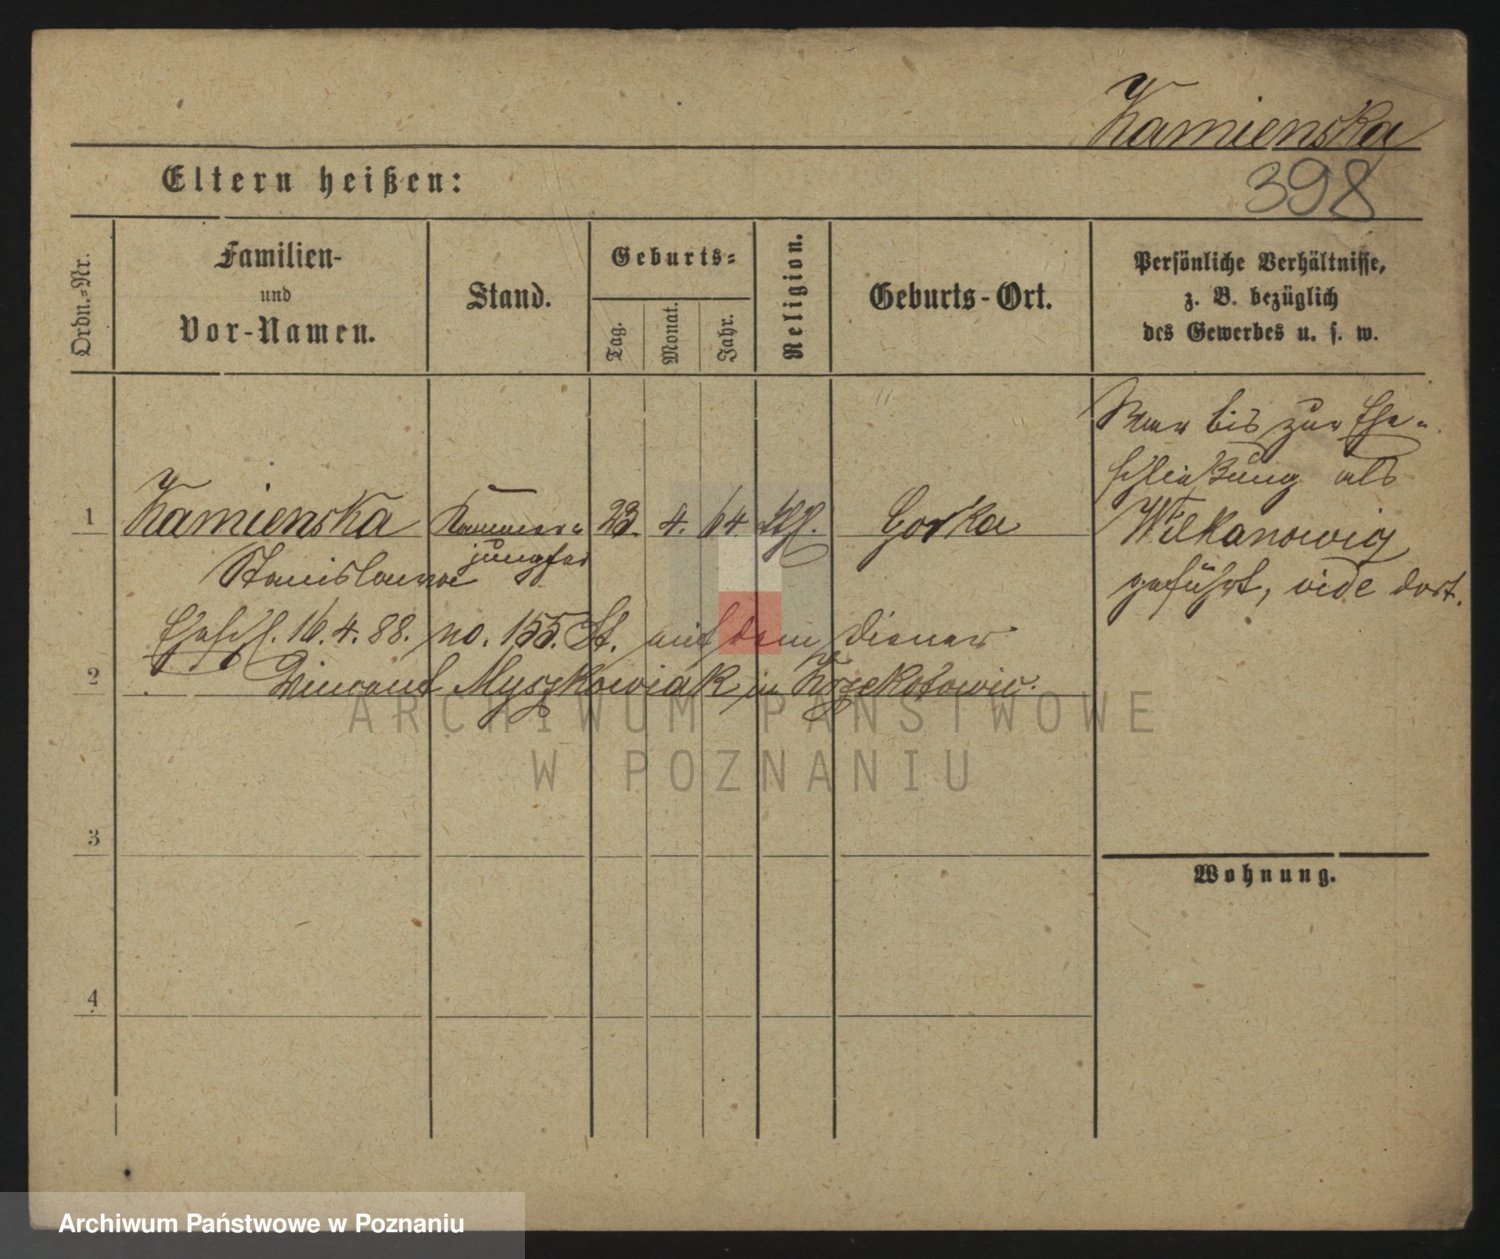 Kamienska
Eltern heißen:
398
Ordn.-Nr.
Familien-
und
Vor-Namen.
Stand.
Geburts-
Tag.
Monat.
Jahr.
Religion.
Geburts-Ort.
Persönliche Verhältnisse,
z. B. bezüglich
des Gewerbes u. s. w.
War bis zur Ehe-
schließung als
Wilkanowicz
geführt, vide dort.
1 Kamienska Kammer- 23. 4. 64 kth. Gorka
Stanislawa jungfer
Eheschl. 16.4.88. no. 155. St. mit dem Diener
2
Vincent Myszkowiak in Krzekotowic.
3
Wohnung.
4
ARCHIWUM PAŃSTWOWE
W POZNANIU
Archiwum Państwowe w Poznaniu